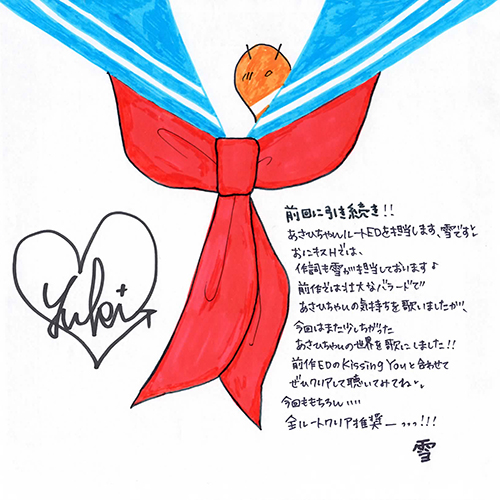 Yuki
前回に引き続き!!
あさひちゃんルートEDを担当します、雪ですと
おにキスHでは、
作詞も雪が担当しております♪
前作では壮大なバラードで
あさひちゃんの気持ちを歌いましたが、
今回はまた少しちがった
あさひちゃんの世界を歌にしました!!
前作EDのKissing Youと合わせて
ぜひクリアして聴いてみてね、
今回ももちろん....
全ルートクリア推奨ーっっっ!!!
雪